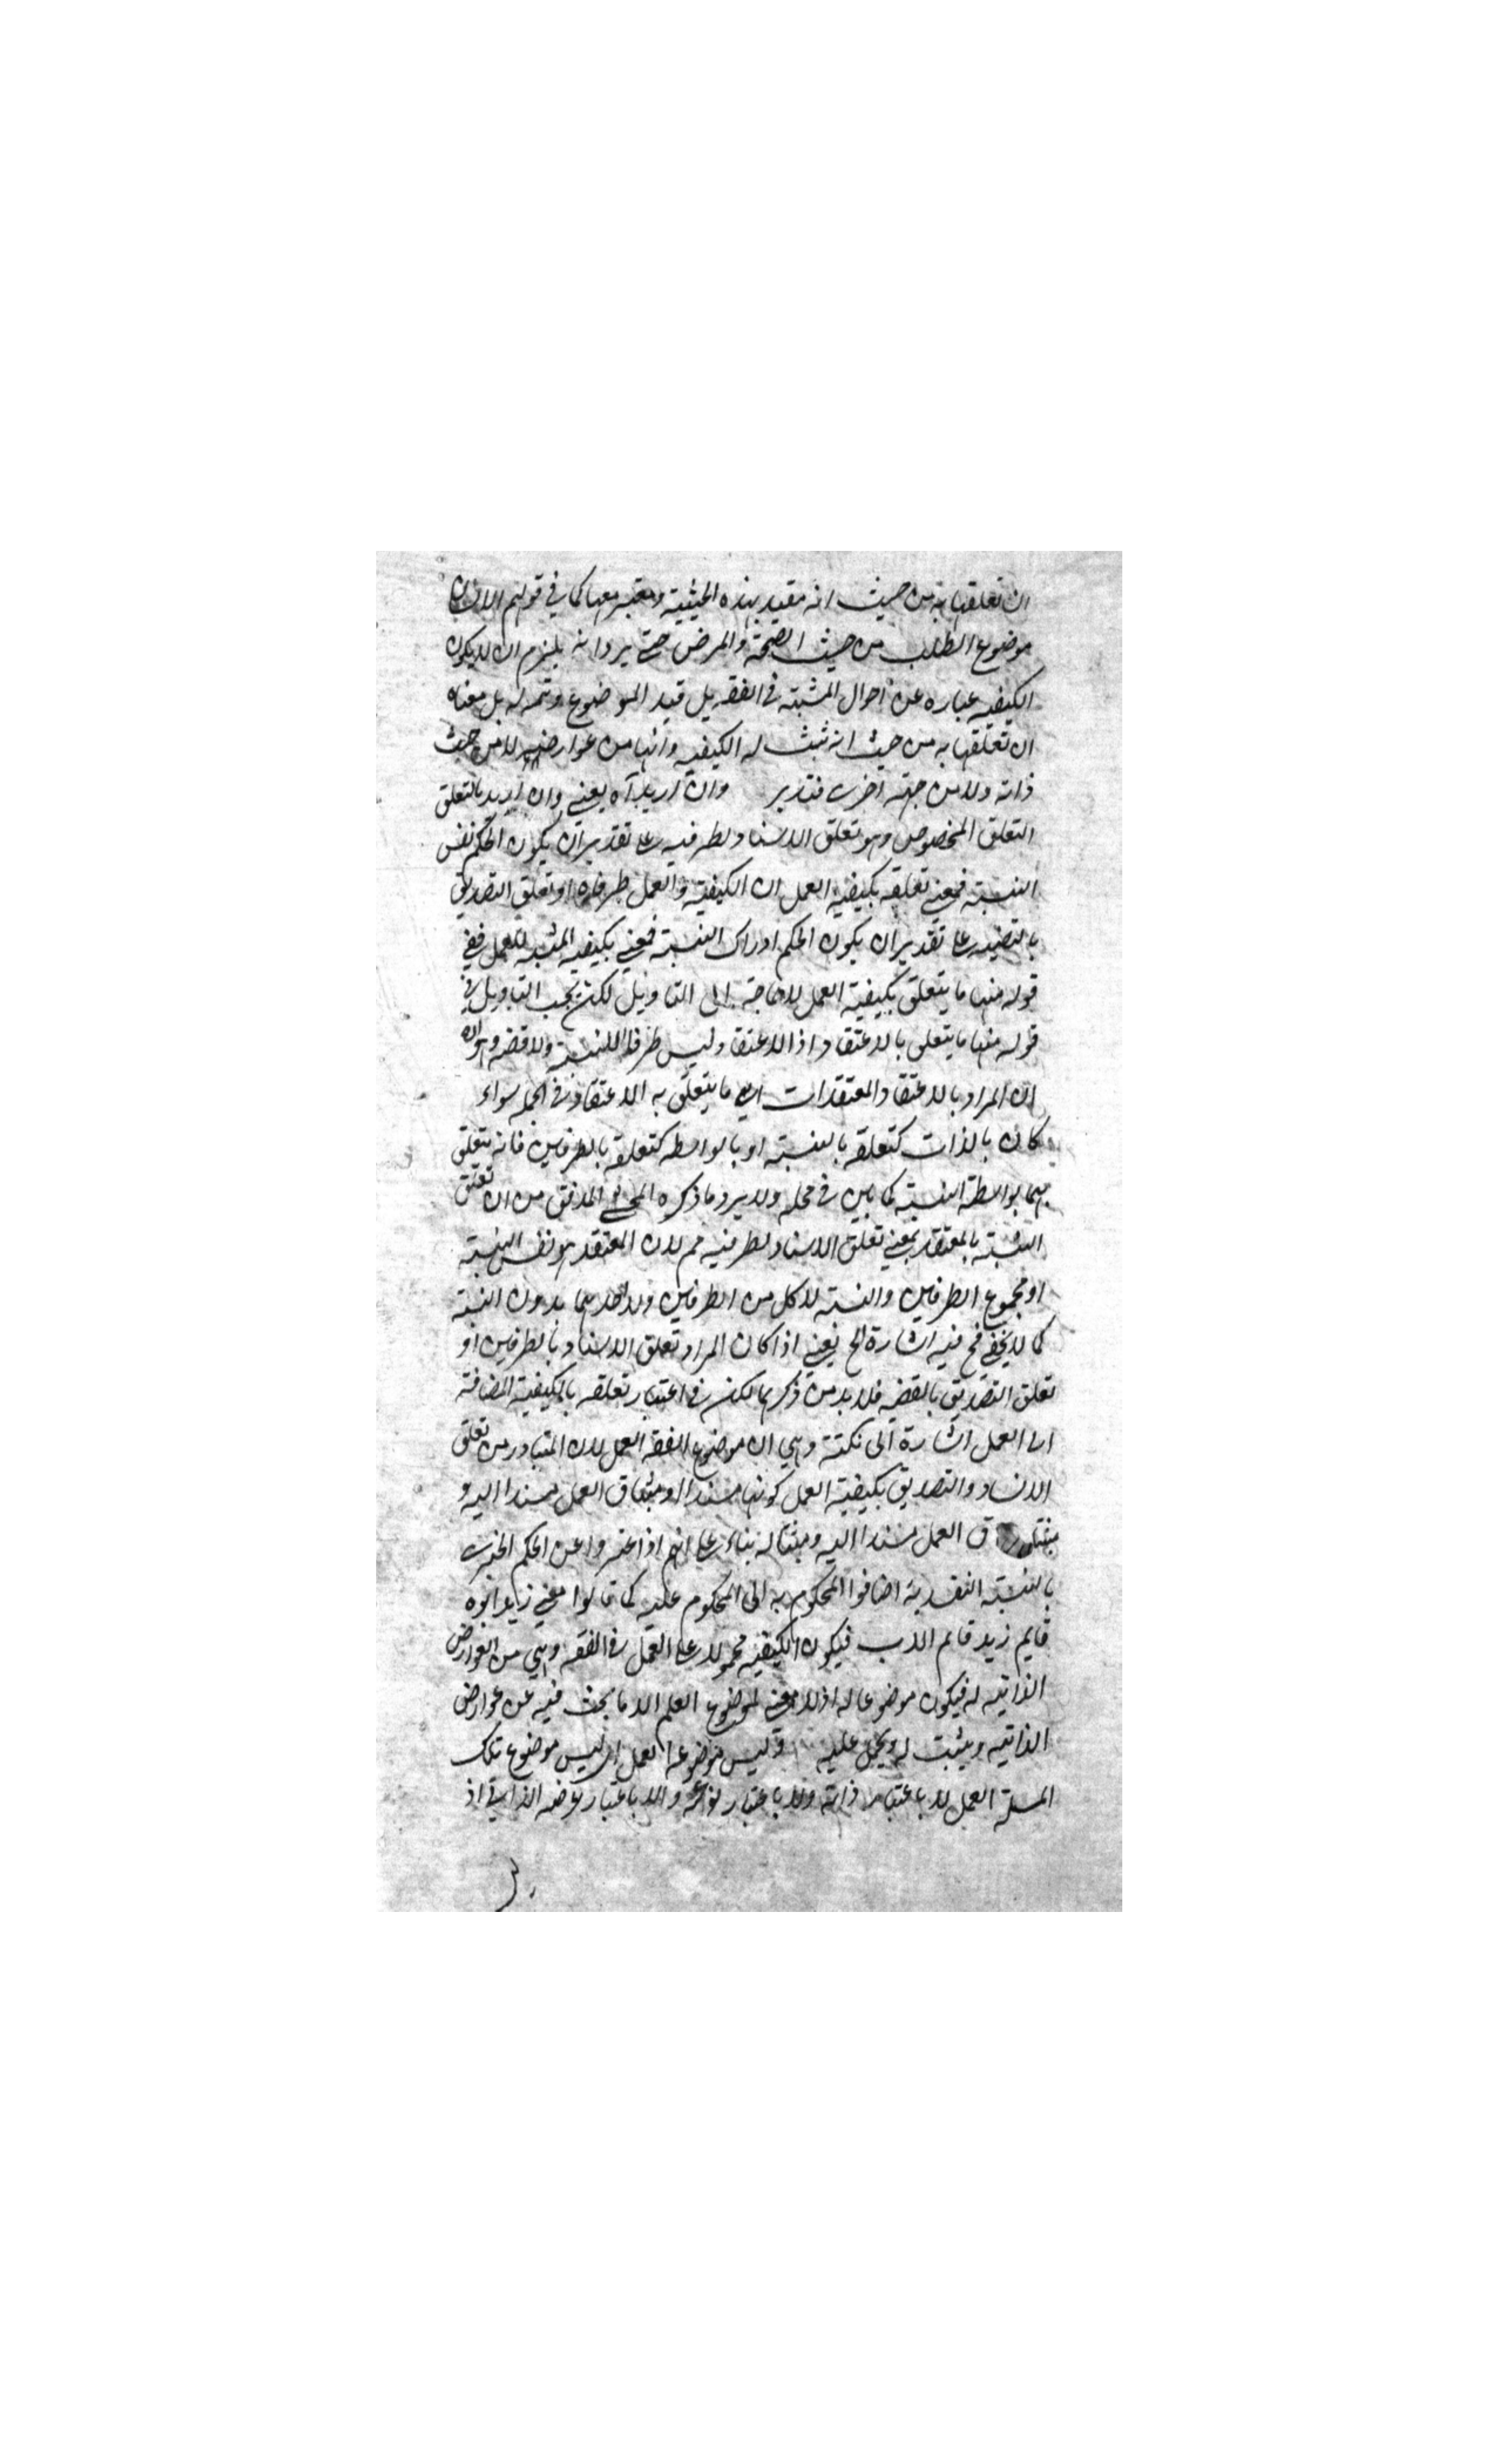 ان تعلقها به من حيث انه مقيد بهذه الحيثية ومعتبر معها كما في قولهم الانسان
موضوع الطب من حيث الصحة والمرض حتى يرد انه يلزم ان لا يكون
الكيفيه عباره عن احوال المثبته في الفقه بل قيد الموضوع وتتمه له بل معناه
ان تعلقها به من حيث انه تثبت له الكيفيه وانها من عوارضه لا من حيث
ذاته ولا من جهته اخرى فتدبر وان اريد آه يعنى وان اريد بالتعلق
التعلق المخصوص وهو تعلق الاسناد بطرفيه على تقدير ان يكون الحكم نفس
النسبته فمعنى تعلقه بكيفية العمل ان الكيفية والعمل طرفاه او تعلق التصديق
بالقضيه على تقدير ان يكون الحكم ادراك النسبته فمعنى بكيفيه المثبته للعمل ففي
قوله منها ما يتعلق بكيفية العمل لا حاجته الى التاويل لكن يجب التاويل في
قوله منها ما يتعلق بالاعتقاد اذ الاعتقاد ليس طرفا للنسبته ولا قضيه وهو
ان المراد بالاعتقاد المعتقدات اى ما يتعلق به الاعتقاد في الجمله سواء
كان بالذات كتعلقه بالنسبته او بالواسطه كتعلقه بالطرفين فانه يتعلق
بهما بواسطة النسبته كما بين في محله ولا يرد ما ذكره المحشي المدقق من ان تعلق
النسبته بالمعتقد بمعنى تعلق الاسناد بطرفيه مم لان المعتقد هو نفس النسبته
او مجموع الطرفين والنسبته لا كل من الطرفين ولا احدهما بدون النسبته
كما لا يخفى فح فيه اشارة الخ يعنى اذا كان المراد تعلق الاسناد بالطرفين او
تعلق التصديق بالقضيه فلا بد من ذكرهما لكن في اعتبار تعلقه بالكيفية المضافة
الى العمل اشارة الى نكتة وهي ان موضوع الفقه العمل لان المتبادر من تعلق
الاسناد والتصديق بكيفية العمل كونها مسندا ومثبتا العمل مسندا اليه و
العمل مسندا اليه ومثبتا له بناء على انهم اذا عبروا عن الحكم الخبرى
بالنسبته اضافوا المحكوم به الى المحكوم عليه كما قالوا معنى زيد ابوه
قايم زيد قايم الاب فيكون الكيفيه محمولا على العمل في الفقه وهي من العوارض
الذاتيه له فيكون موضوعا له اذ لا معنى لموضوع العلم الا ما يبحث فيه عن عوارض
الذاتيه ويثبت له ويحمل عليه وليس موضوعه العمل اى ليس موضوع تلك
المسئلة العمل لا باعتبار ذاته ولا باعتبار نوعه ولا باعتبار عرضه الذاتي اذ